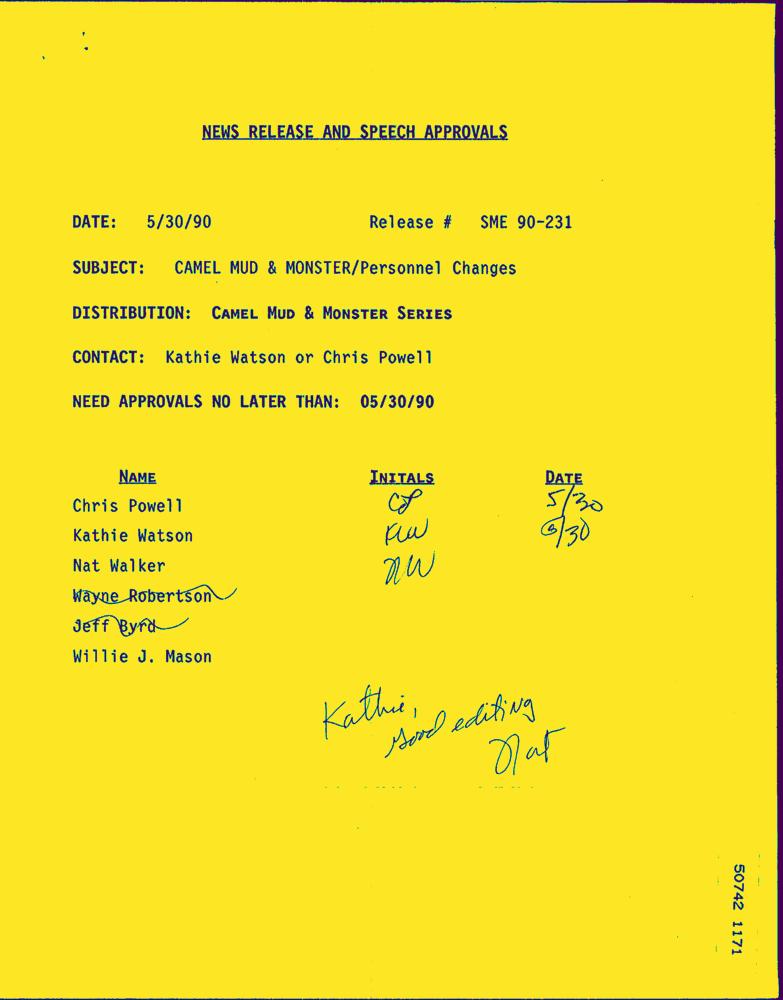 NEWS RELEASE AND SPEECH APPROVALS
DATE: 5/30/90 Release # SME 90-231
SUBJECT: CAMEL MUD & MONSTER/Personnel Changes
DISTRIBUTION: CAMEL MUD & MONSTER SERIES
CONTACT: Kathie Watson or Chris Powell
NEED APPROVALS NO LATER THAN: 05/30/90
NAME INITALS DATE
Chris Powell CP 5/30
Kathie Watson KW 5/30
Nat Walker NW
Wayne Robertson
Jeff Byrd
Willie J. Mason
Kathie,
Good editing
Nat
50742 1171